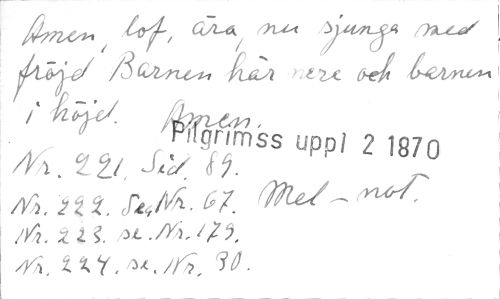 Amen, lof, ära, nu sjunga med
fröjd Barnen här nere och barnen
i höjd. Amen.
Pilgrimss uppl 2 1870
Nr. 221. Sid. 89.
Nr. 222. Se Nr. 67. Mel-not.
Nr. 223. se. Nr. 179.
Nr. 224. se. Nr. 30.